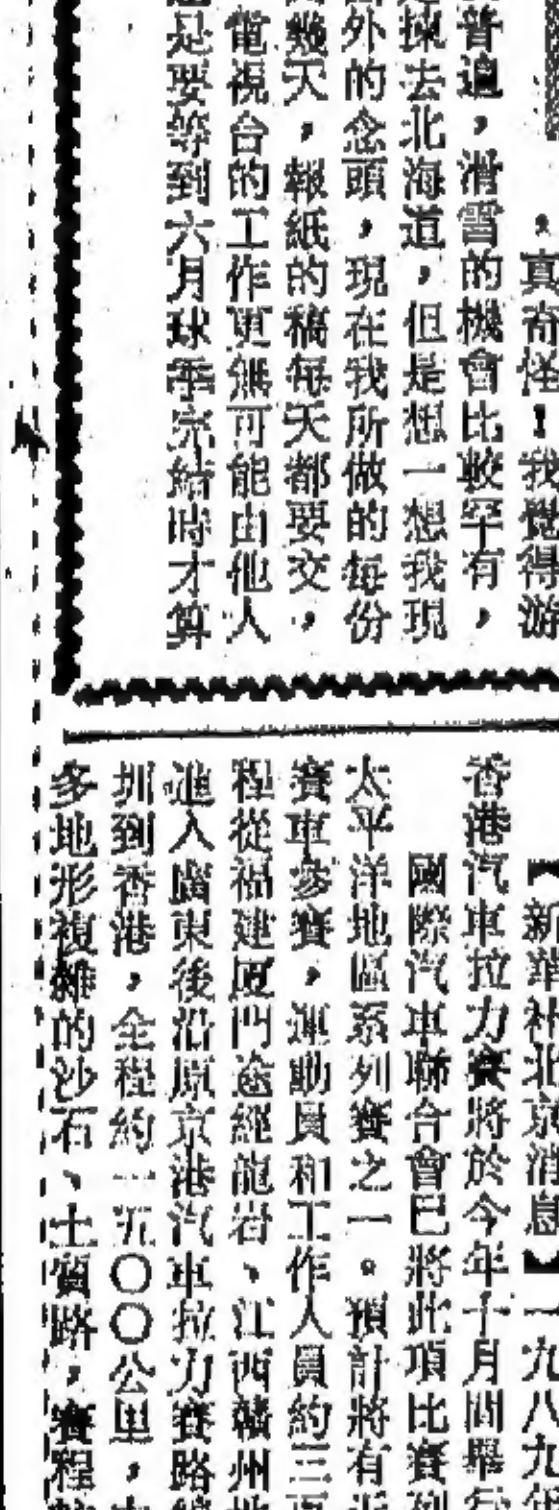 ，真奇怪！我覺得游
普遍，滑雪的機會比較罕有，
揀去北海道，但是想一想我現
外的念頭，現在我所做的每份
幾天，報紙的稿每天都要交，
電視台的工作更無可能由他人
是要等到六月球季完結時才算
【新華社北京消息】一九八九年
香港汽車拉力賽將於今年十月間舉行
國際汽車聯合會已將此項比賽列
太平洋地區系列賽之一。預計將有近
賽車參賽，運動員和工作人員約三百
程從福建厦門途經龍岩、江西贛州地
進入廣東後沿原京港汽車拉力賽路線
圳到香港，全程約一五〇〇公里，
多地形複雜的沙石、土質路，賽程